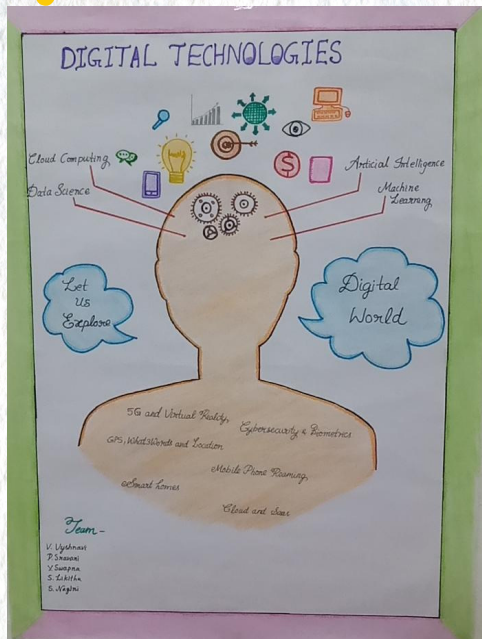 DIGITAL TECHNOLOGIES
Cloud Computing,
Data Science
Articial Intelligence
Machine
Learning
$
Let
Us
Explore
Digital
World
5G and Virtual Reality,
Cybersecurity & Biometrics
GPS, What3Words and Location
Mobile Phone Roaming,
Smart homes
Cloud and SaaS
Team-
V. Vyshnavi
P. Sravani
Y. Swapna
S. Likitha
S.